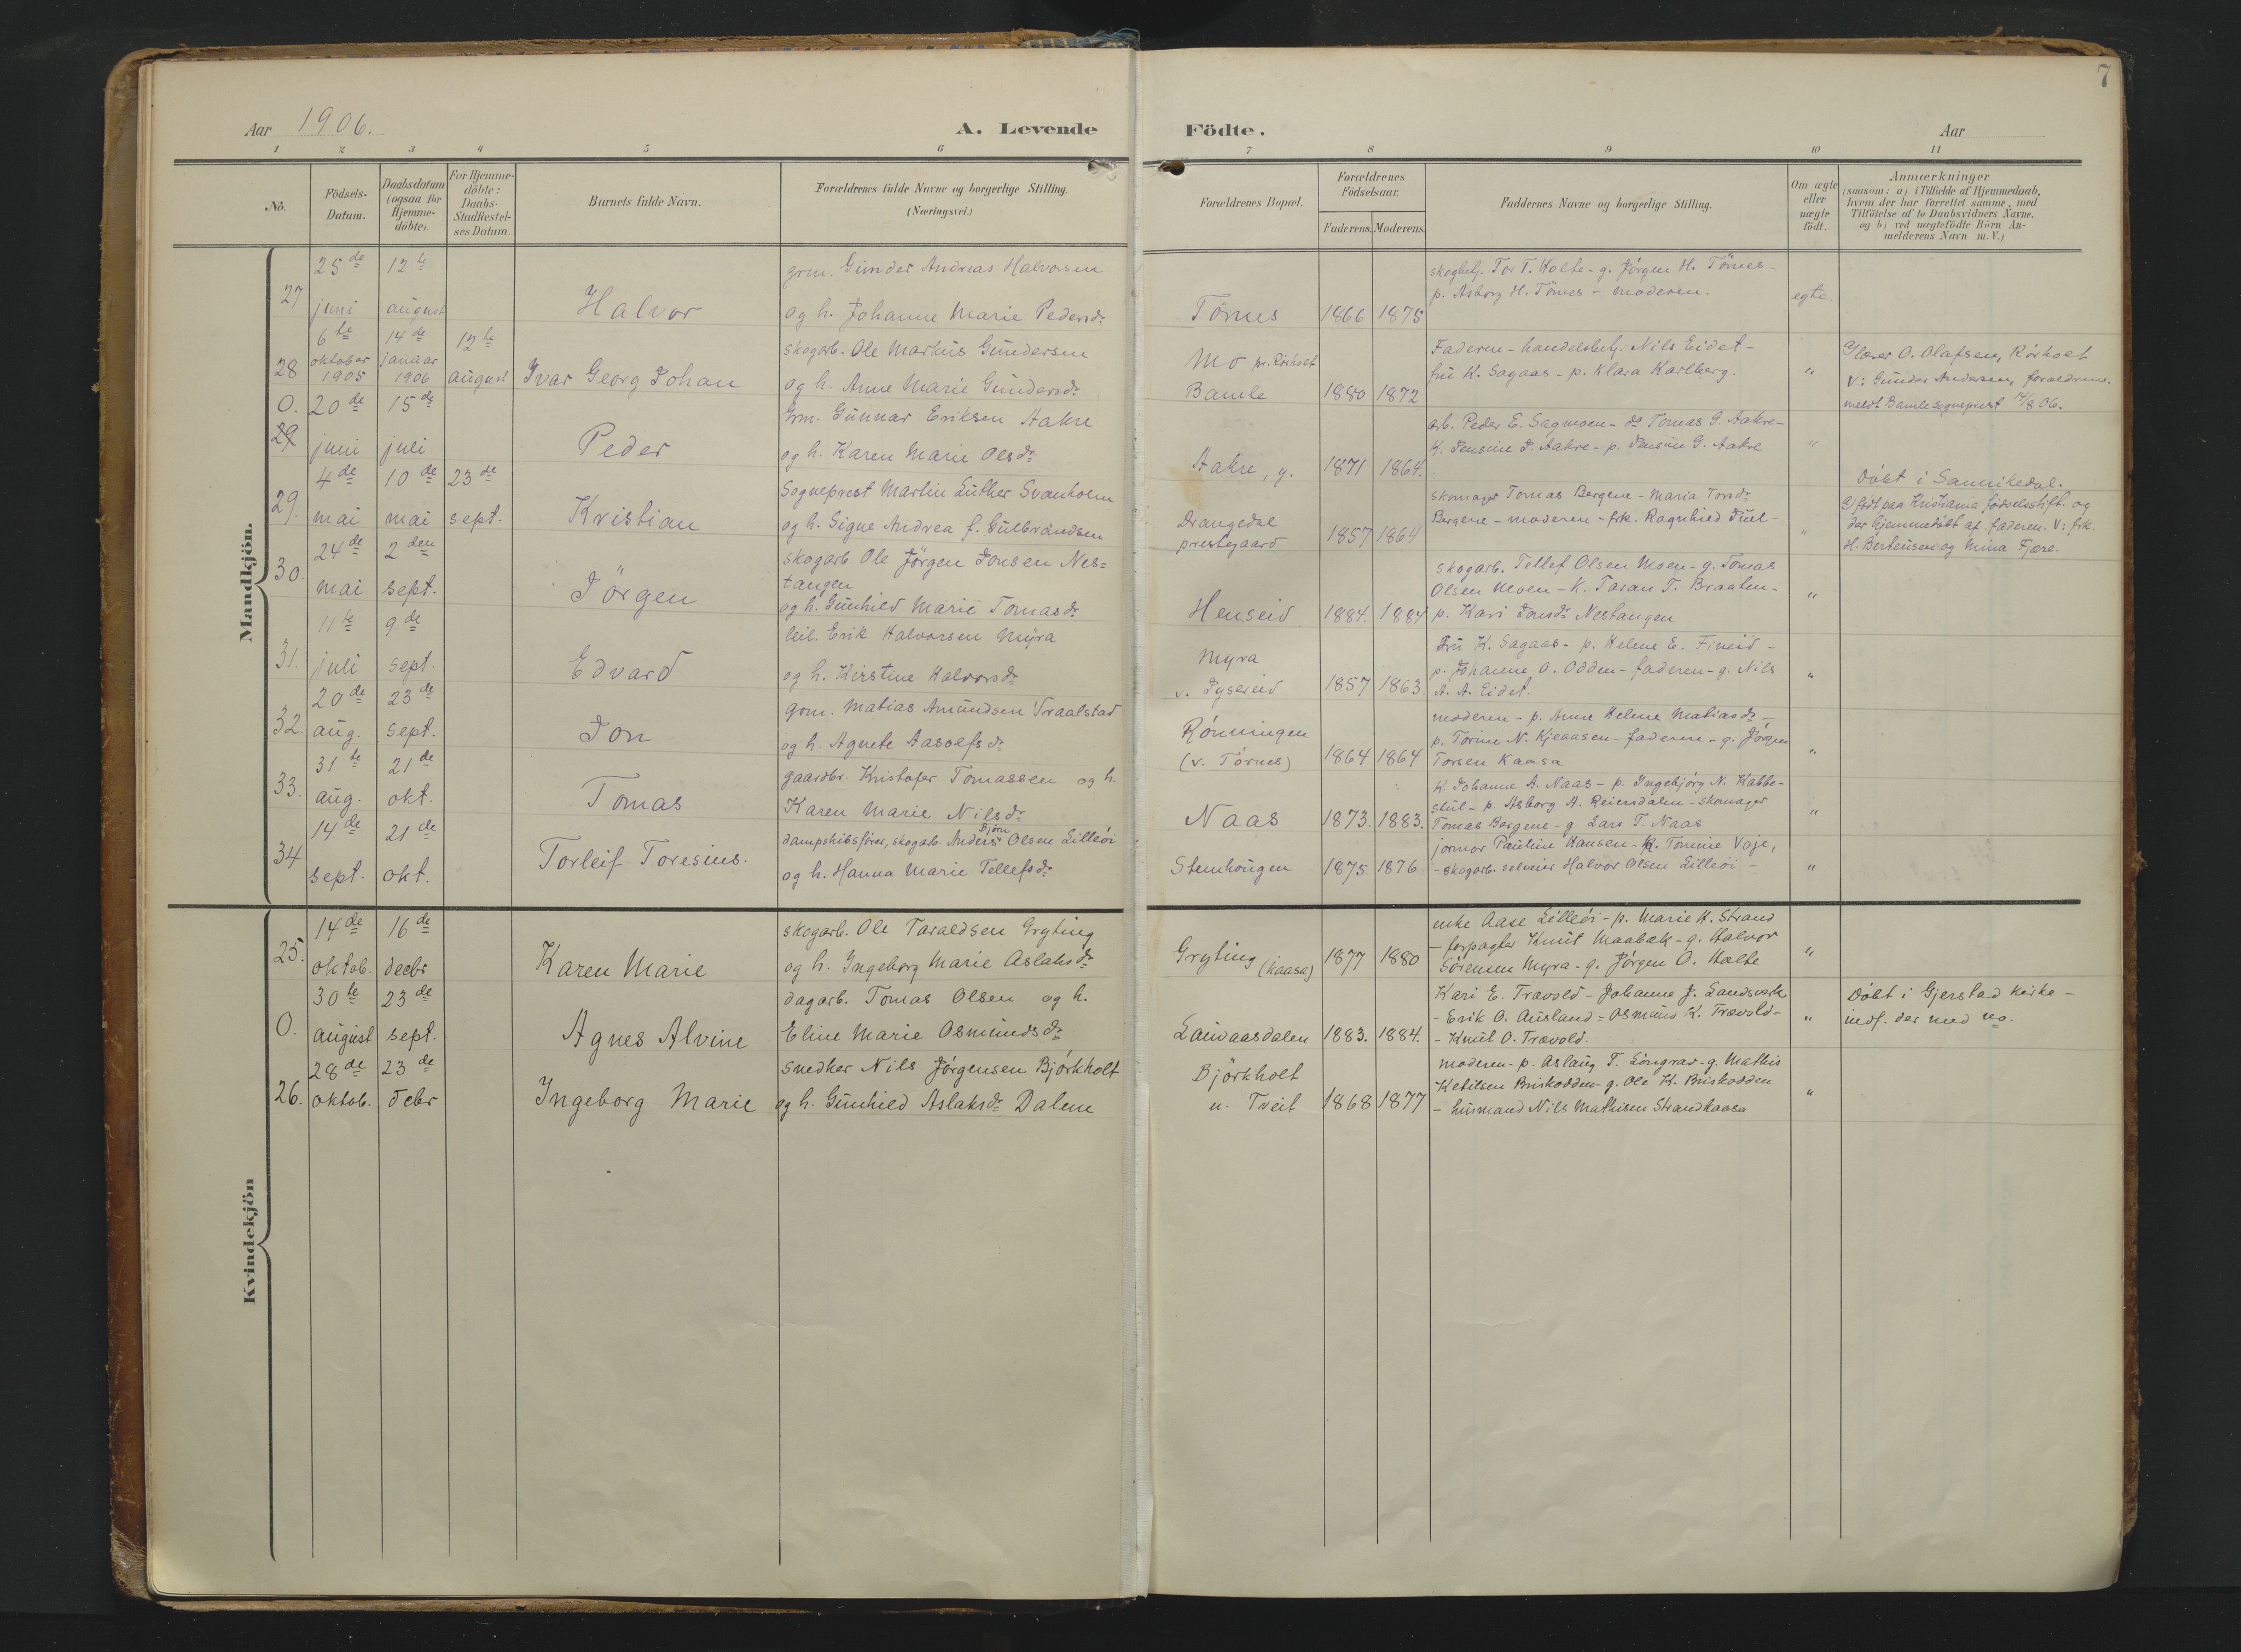 7
Aar 1906.
A. Levende
Födte.
Aar
1 2 3 4 5 6 7 8 9 10 11
No.
Födsels-
Datum.
Daabsdatum
(ogsaa for
Hjemme-
döbte).
For Hjemme-
döbte:
Daabs-
Stadfæstel-
ses Datum.
Barnets fulde Navn.
Forældrenes fulde Navne og borgerlige Stilling.
(Næringsvei.)
Forældrenes Bopæl.
Forældrenes
Födselsaar.
Faderens.
Moderens.
Faddernes Navne og borgerlige Stilling.
Om ægte
eller
uægte
födt.
Anmærkninger
(saasom: a) i Tilfælde af Hjemmedaab,
hvem der har forrettet samme, med
Tilföielse af to Daabsvidners Navne.
og b) ved uægtefödte Börn An-
melderens Navn m. V.)
Mandkjön.
27
25de
juni
12te
august
Halvor
grm. Gunder Andreas Halvorsen
og h. Johanne Marie Pedersdr
Törnes
1866 1875
skogbetj. Tor T. Holte - g. Jörgen H. Törnes -
p. Asborg H. Törnes - moderen.
egte.
28
6te
oktober
1905
14de
januar
1906
12te
august
Ivar Georg Johan
skogarb. Ole Markus Gundersen
og h. Anne Marie Gundersdr
Mo pr. Rörholt
Bamle
1880 1872
Faderen - handelsbetj. Nils Eidet -
fru K. Sagaas - p. Klara Karlberg.
"
lærer O. Olafsen, Rörholt
V: Gunder Andersen, forældrene.
meldt Bamle sogneprest 14/8 06.
O.
29
20de
juni
15de
juli
Peder
Grm. Gunnar Eriksen Aakre
og h. Karen Marie Olsdr
Aakre, g.
1871 1864.
arb. Peder E. Sagmoen - do Tomas G. Aakre -
K. Jensine J. Aakre - p. Jensine G. Aakre
"
Döbt i Sannikedal.
29.
4de
mai
10de
mai
23de
sept.
Kristian
Sogneprest Martin Luther Svanholm
og h. Signe Andrea f. Gulbrandsen
Drangedal
prestegaard
1857 1864
skomager Tomas Bergene - Maria Torsdr
Bergene - moderen - frk. Ragnhild Juel -
"
a) født paa Kristiania fødselsstift. og
der hjemmedöbt af faderen. V: frk.
H. Bertensen og Mina Fjære.
30.
24de
mai
2den
sept.
Jörgen
skogarb. Ole Jörgen Jonsen Nes=
tangen
og h. Gunhild Marie Tomasdr
Henseid
1884. 1884
skogarb. Tellef Olsen Moen - g. Tomas
Olsen Moen - K. Taran T. Braaten -
p. Kari Jonsdr Nestangen
"
31.
11te
juli
9de
sept.
Edvard
leil. Erik Halvorsen Myra
og h. Kirstine Halvorsdr
Myra
v. Dyserud
1857 1863.
Fru K. Sagaas - p. Helene E. Fineid -
p. Johanne O. Odden - faderen - g. Nils
A. A. Eidet.
"
32.
20de
aug.
23de
sept.
Jon
gom. Matias Amundsen Traalstad
og h. Agnete Aasolfsdr
Rönningen
(v. Törnes)
1864 1864
moderen - p. Anne Helene Matiasdr -
p. Torine N. Kjeaasen - faderen - g. Jörgen
Torsen Kaasa
"
33.
31te
aug.
21de
okt.
Tomas
gaardbr. Kristofer Tomassen og h.
Karen Marie Nilsdr
Naas
1873. 1883.
K. Johanne A. Naas - p. Ingebjörg N. Kabbe-
stul - p. Asborg A. Reiersdalen - skomager
Tomas Bergene - g Lars T. Naas
"
34
14de
sept.
21de
okt.
Torleif Toresius.
Björn
dampskibsförer, skogarb. Anders Olsen Lilleöi
og h. Hanna Marie Tellefsdr
Stemhougen
1875 1876
jormor Pauline Hansen - K. Tomine Voje,
- skogarb. selveier Halvor Olsen Lilleöi -
"
Kvindekjön
25.
14de
oktob.
16de
decbr
Karen Marie
skogarb. Ole Taraldsen Gryting
og h. Ingeborg Marie Aslaksdr
Gryting (kaasa)
1877 1880
enke Aase Lilleöi - p. Marie K. Strand
- forpagter Knut Maabæk - g. Halvor
Sörensen Myra - g. Jörgen O. Holte
"
O.
30te
august
23de
sept.
Agnes Alvine
dagarb. Tomas Olsen og h.
Eline Marie Osmundsdr
Lauvaasdalen
1883. 1884.
Kari E. Trævold - Johanne J. Landsverk
- Erik O. Ausland - Osmund K. Trævold -
- Knut O. Trævold.
"
Döbt i Gjerstad kirke -
indf. der med no.
26.
28de
oktob.
23de
Debr
Ingeborg Marie
Snedker Nils Jörgensen Björkholt
og h. Gunhild Aslaksdr Dalene
Björkholt
u. Tveit
1868 1877
moderen - p. Aslaug T. Longrar - g. Mathis
Ketilsen Briskodden - g. Ole K. Briskodden
- husmand Nils Mathisen Strandkaasa
"